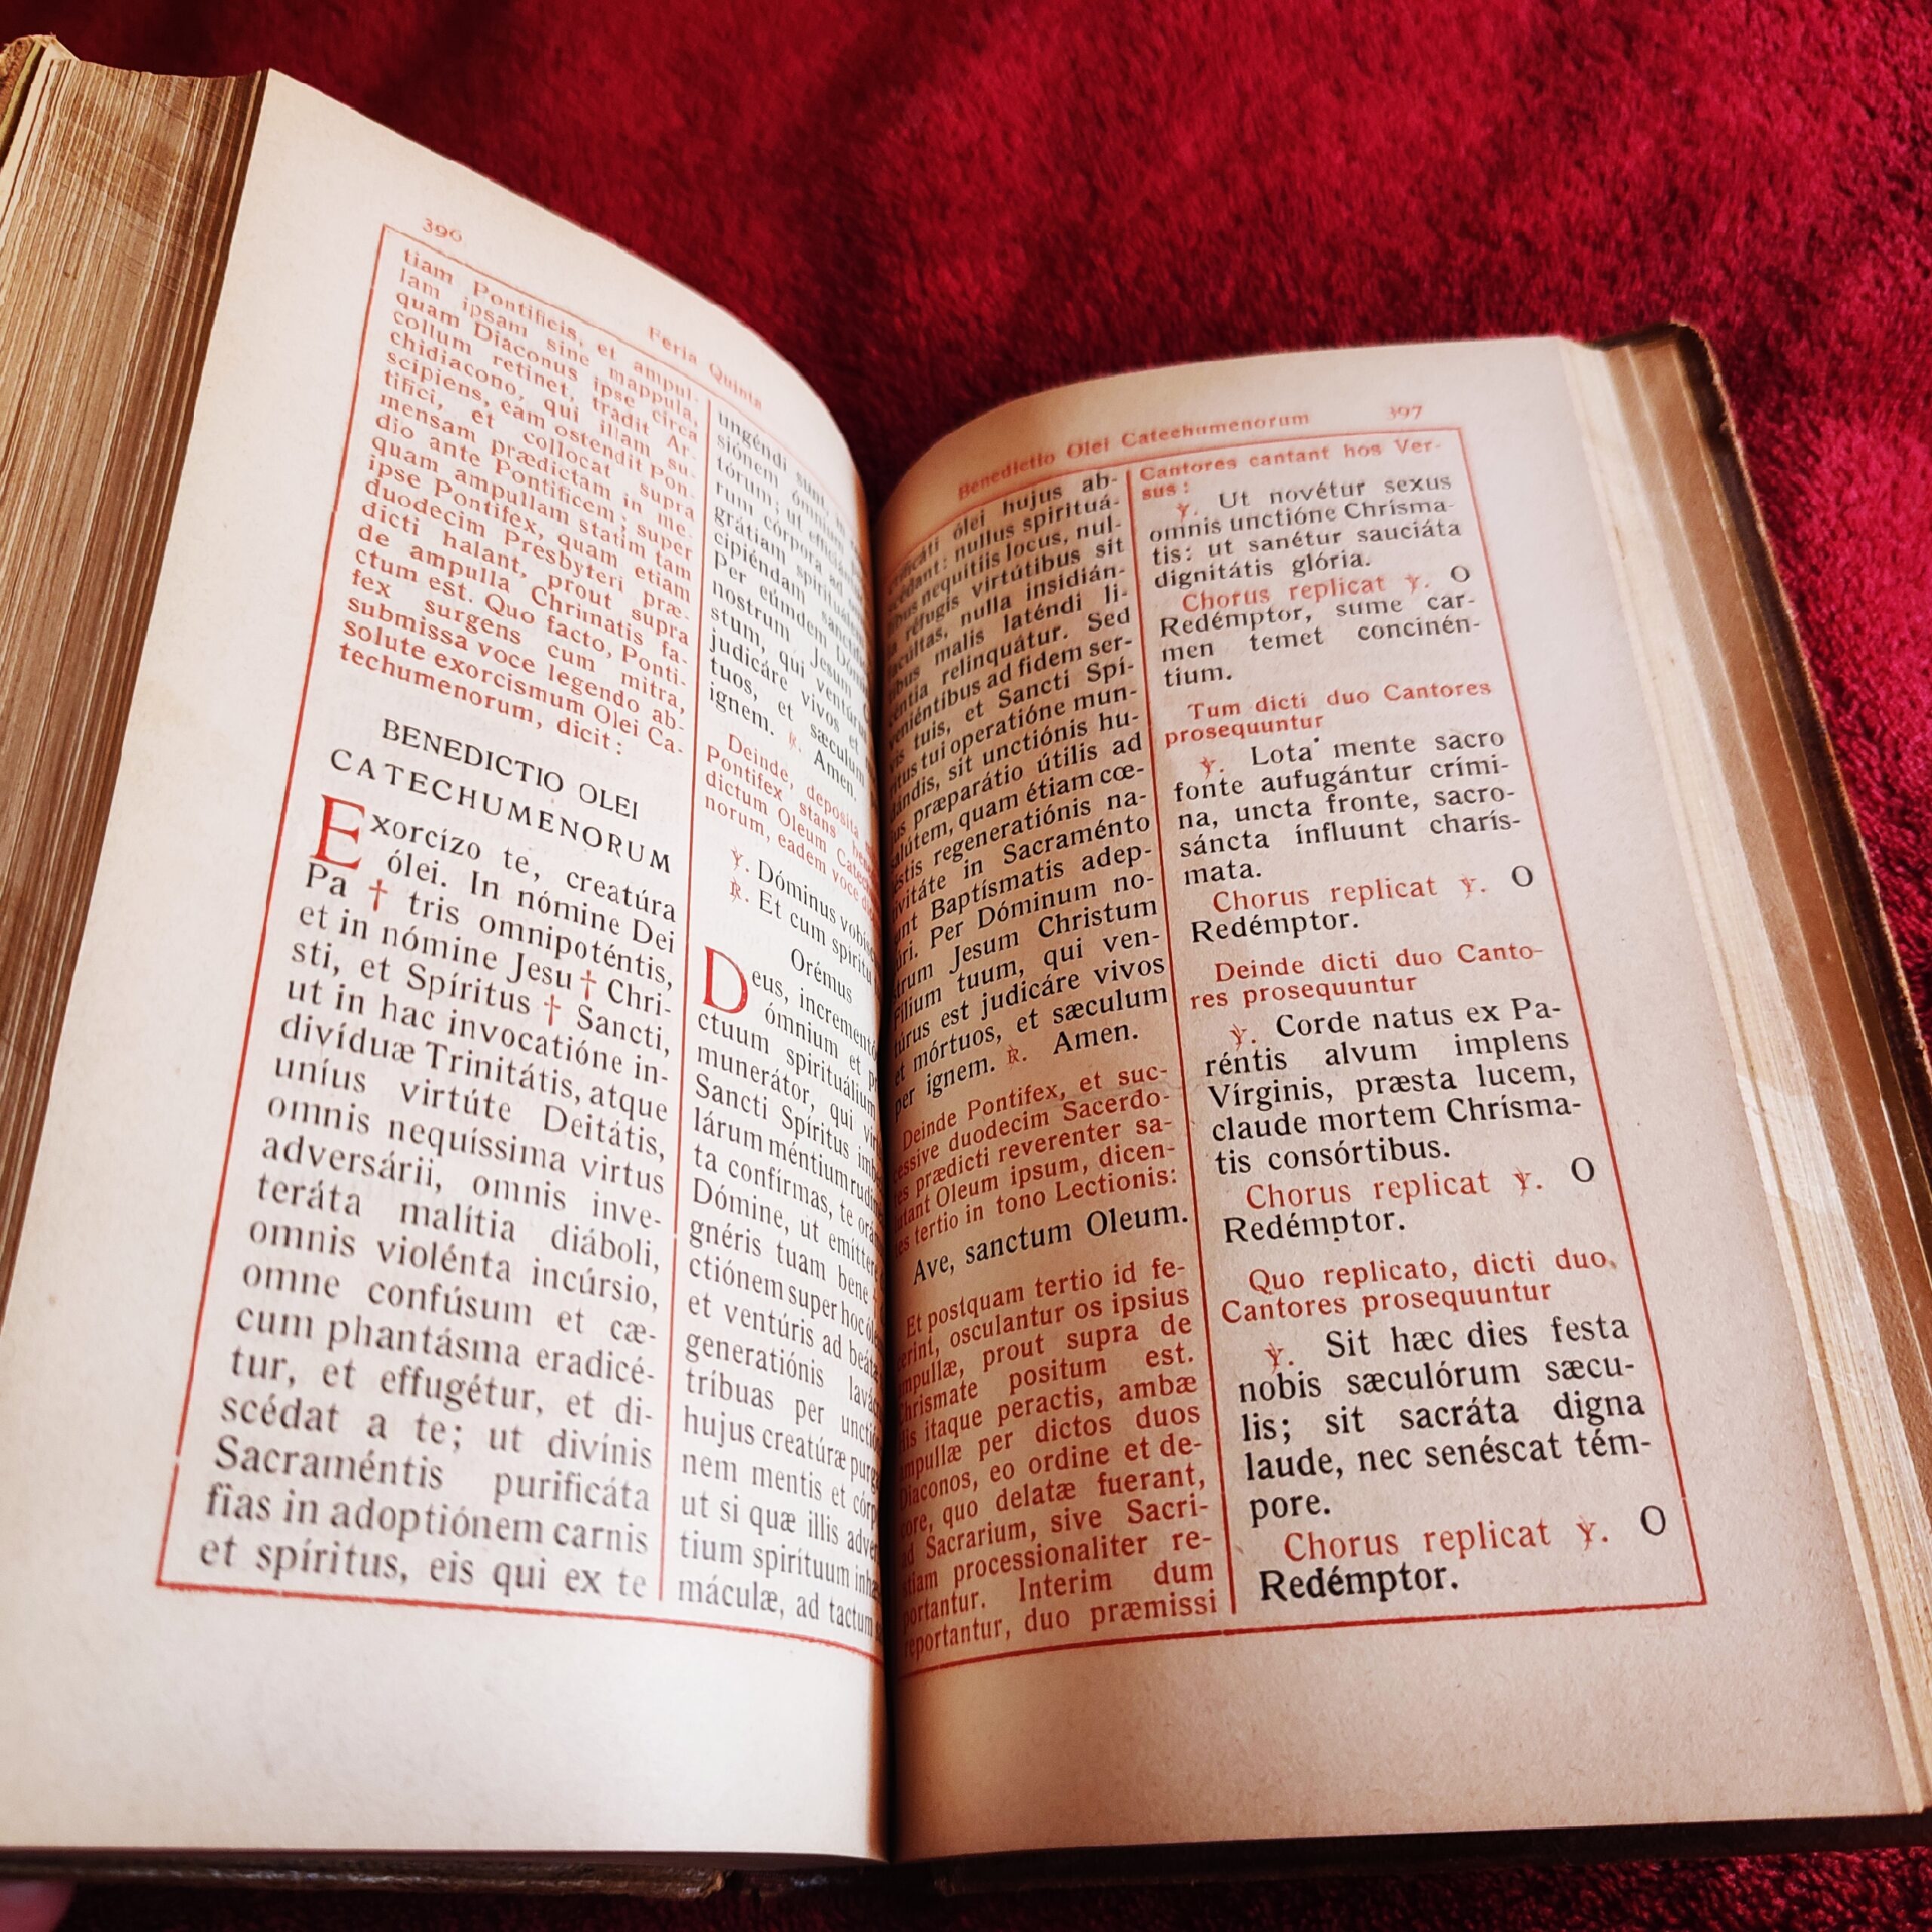 396
Feria Quinta
tiam Pontificis, et ampul-
lam ipsam sine mappula,
quam Diaconus ipse circa
collum retinet, tradit Ar-
chidiacono, qui illam su-
scipiens, eam ostendit Pon-
tifici, et collocat supra
mensam prædictam in me-
dio ante Pontificem; super
quam ampullam statim tam
ipse Pontifex, quam etiam
duodecim Presbyteri præ-
dicti halant, prout supra
de ampulla Chrimatis fa-
ctum est. Quo facto, Ponti-
fex surgens cum mitra,
submissa voce legendo ab-
solute exorcismum Olei Ca-
techumenorum, dicit:
BENEDICTIO OLEI
CATECHUMENORUM
Exorcízo te, creatúra
ólei. In nómine Dei
Pa † tris omnipoténtis,
et in nómine Jesu † Chri-
sti, et Spíritus † Sancti,
ut in hac invocatióne in-
divíduæ Trinitátis, atque
uníus virtúte Deitátis,
omnis nequíssima virtus
adversárii, omnis inve-
teráta malítia diáboli,
omnis violénta incúrsio,
omne confúsum et cæ-
cum phantásma eradicé-
tur, et effugétur, et di-
scédat a te; ut divínis
Sacraméntis purificáta
fias in adoptiónem carnis
et spíritus, eis qui ex te
ungéndi sunt, in
siónem ómnium
tórum; ut
rum córpora ad
grátiam spirituálem
cipiéndam
Per eúmdem Dómi
nostrum Jesum
stum, qui ventúrus
judicáre vivos et
tuos, et sæculum
ignem. ℟. Amen.
Deinde, deposita
Pontifex stans
dictum Oleum
norum, eadem voce
℣. Dóminus
℟. Et cum spíritu
Orémus
Deus,
ómnium et
ctuum spirituálium
munerátor, qui
Sancti Spíritus
lárum méntium
ta confírmas, te
Dómine, ut
gnéris tuam bene
ctiónem super hoc
et ventúris ad
generatiónis
tríbuas per
hujus creatúræ
nem mentis et
ut si quæ illis
tium spirítuum
máculæ, ad tactum
Benedictio Olei Catechumenorum
397
ólei hujus ab-
nullus spirituá-
nequítiis locus, nul-
réfugis virtútibus sit
nulla insidián-
malis laténdi li-
relinquátur. Sed
ad fidem ser-
tuis, et Sancti Spí-
tui operatióne mun-
sit unctiónis hu-
præparátio útilis ad
quam étiam cœ-
regeneratiónis na-
in Sacraménto
Baptísmatis adep-
Per Dóminum no-
strum Jesum Christum
Fílium tuum, qui ven-
túrus est judicáre vivos
et mórtuos, et sæculum
per ignem. ℟. Amen.
Deinde Pontifex, et suc-
cessive duodecim Sacerdo-
tes prædicti reverenter sa-
lutant Oleum ipsum, dicen-
tes tertio in tono Lectionis:
Ave, sanctum Oleum.
Et postquam tertio id fe-
cerint, osculantur os ipsius
ampullæ, prout supra de
Chrismate positum est.
His itaque peractis, ambæ
ampullæ per dictos duos
Diaconos, eo ordine et de-
core, quo delatæ fuerant,
ad Sacrarium, sive Sacri-
stiam processionaliter re-
portantur. Interim dum
reportantur, duo præmissi
Cantores cantant hos Ver-
sus:
℣. Ut novétur sexus
omnis unctióne Chrísma-
tis: ut sanétur sauciáta
dignitátis glória.
Chorus replicat ℣. O
Redémptor, sume car-
men temet concinén-
tium.
Tum dicti duo Cantores
prosequuntur
℣. Lota mente sacro
fonte aufugántur crími-
na, uncta fronte, sacro-
sáncta ínfluunt charís-
mata.
Chorus replicat ℣. O
Redémptor.
Deinde dicti duo Canto-
res prosequuntur
℣. Corde natus ex Pa-
réntis alvum implens
Vírginis, præsta lucem,
claude mortem Chrísma-
tis consórtibus.
Chorus replicat ℣. O
Redémptor.
Quo replicato, dicti duo,
Cantores prosequuntur
℣. Sit hæc dies festa
nobis sæculórum sæcu-
lis; sit sacráta digna
laude, nec senéscat tém-
pore.
Chorus replicat ℣. O
Redémptor.